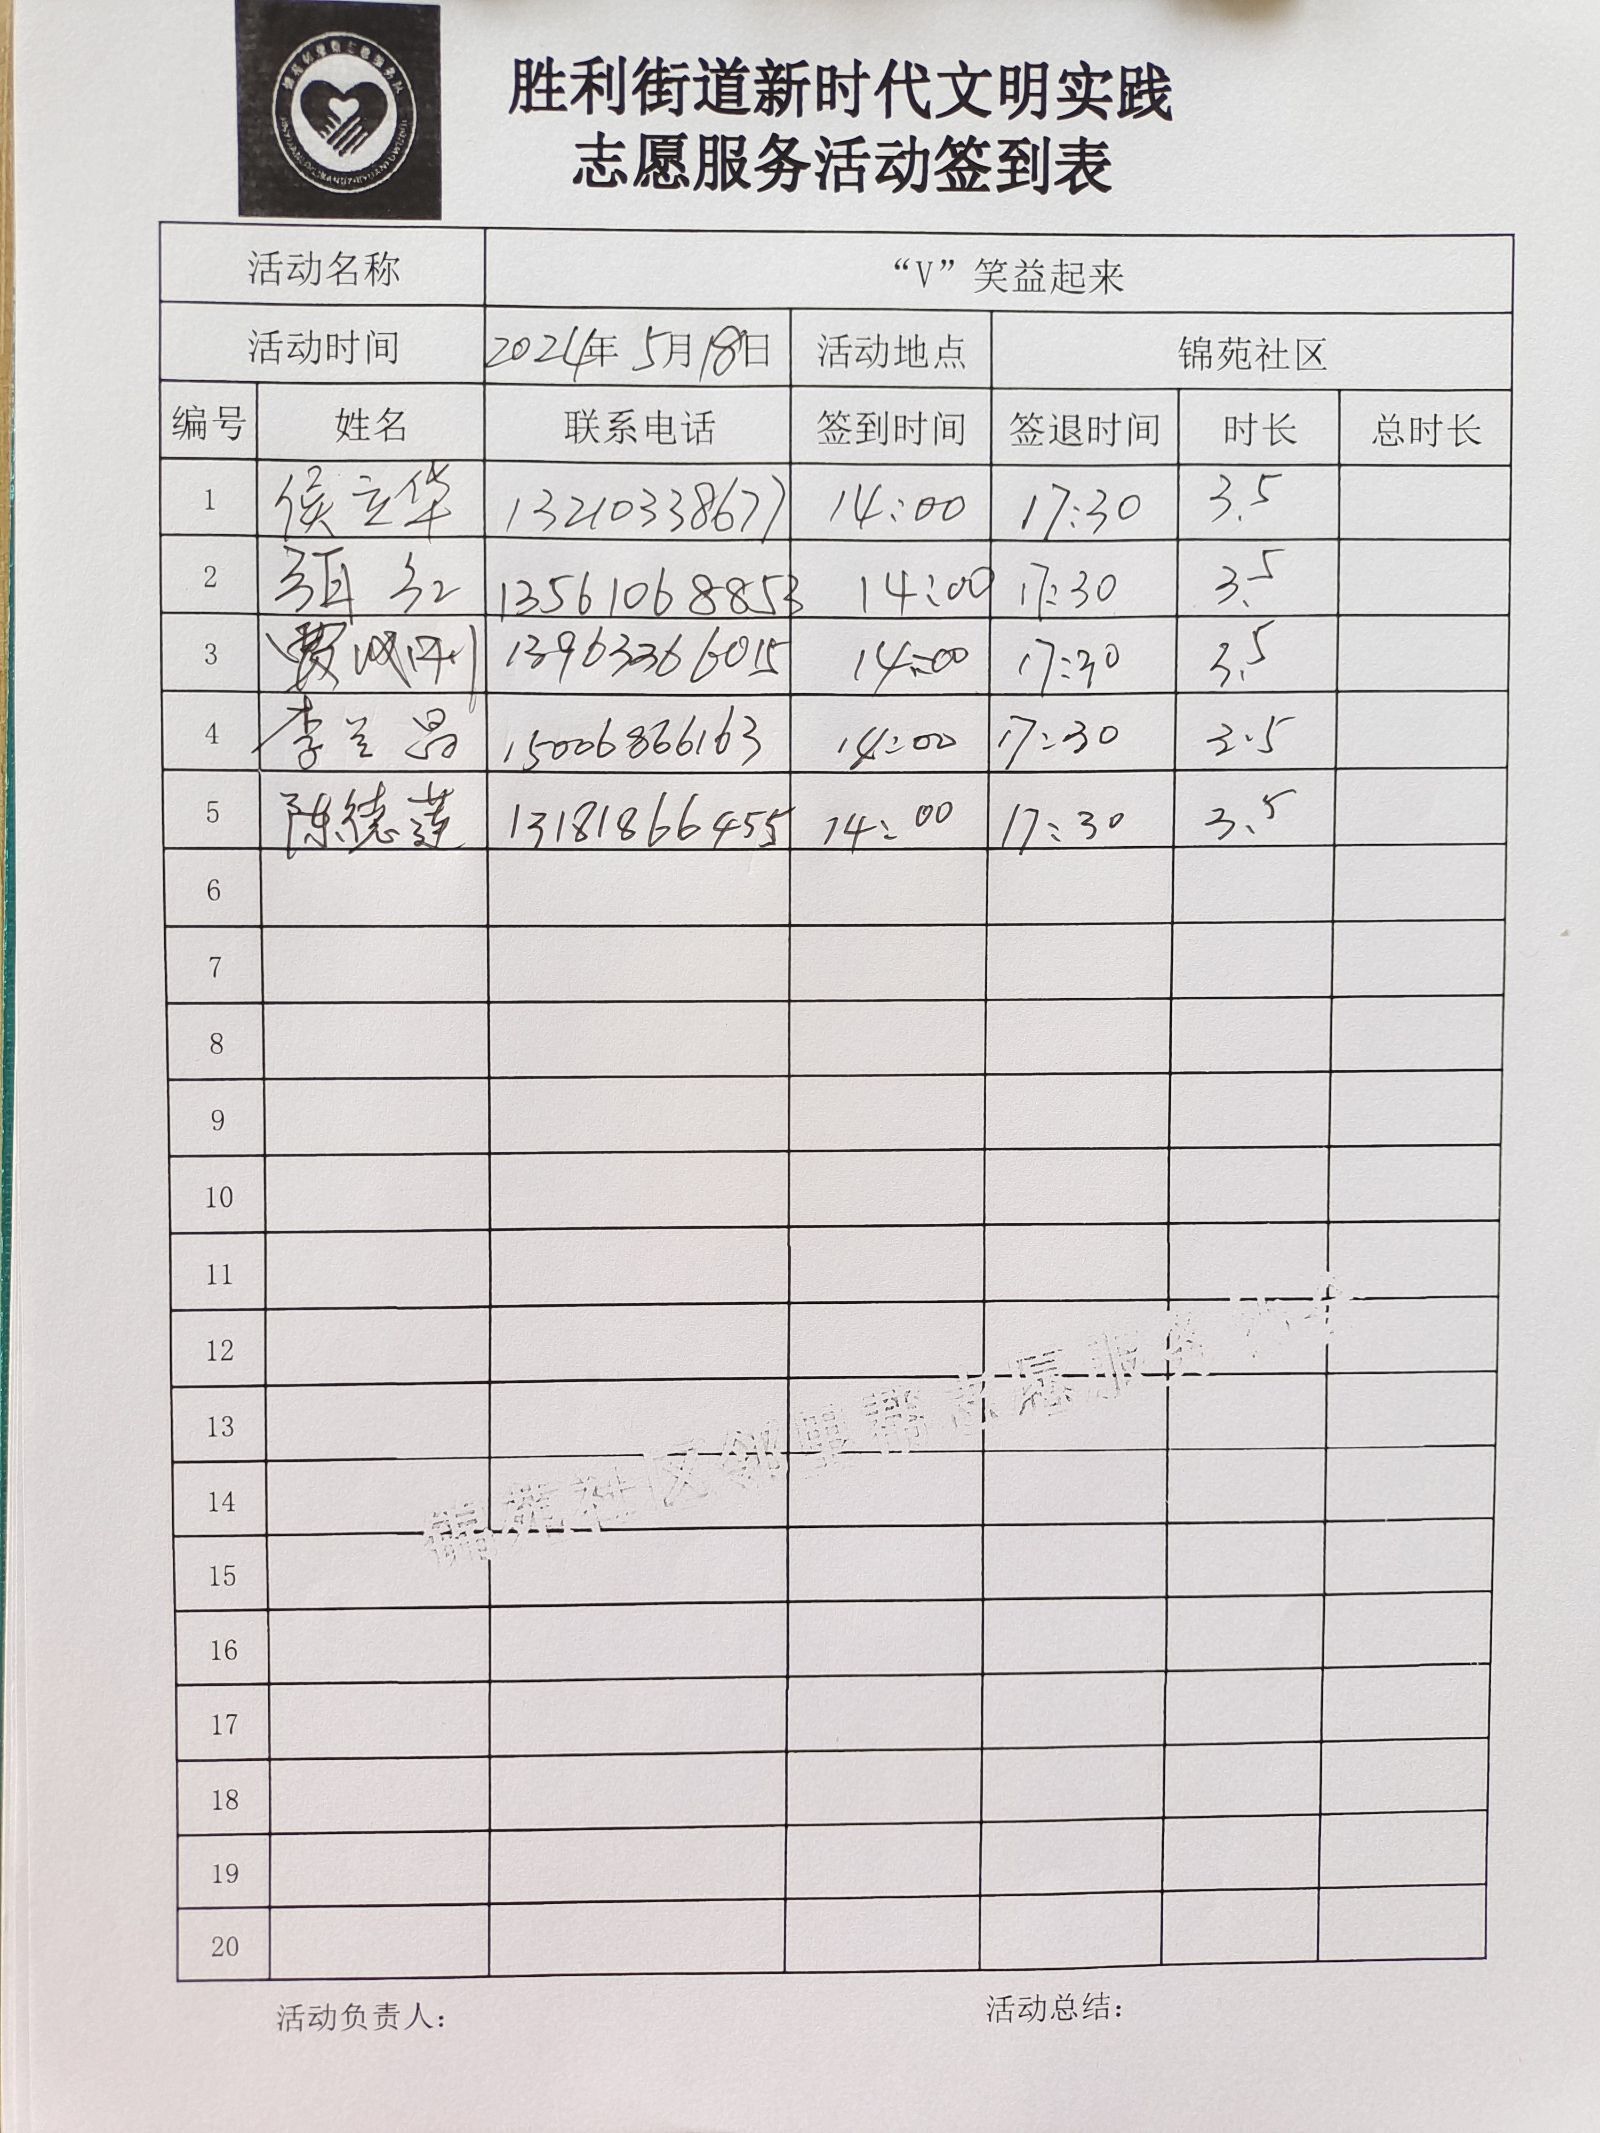 胜利街道新时代文明实践
志愿服务活动签到表
活动名称 “V”笑益起来
活动时间 2024年 5月18日 活动地点 锦苑社区
编号 姓名 联系电话 签到时间 签退时间 时长 总时长
1 侯立华 13210338677 14:00 17:30 3.5
2 红 13561068853 14:00 17:30 3.5
3 13963366015 14:00 17:30 3.5
4 李兰昌 15006866163 14:00 17:30 3.5
5 陈德莲 13181866455 14:00 17:30 3.5
6
7
8
9
10
11
12
13
14
15
16
17
18
19
20
锦苑社区邻里帮志愿服务
活动负责人: 活动总结: